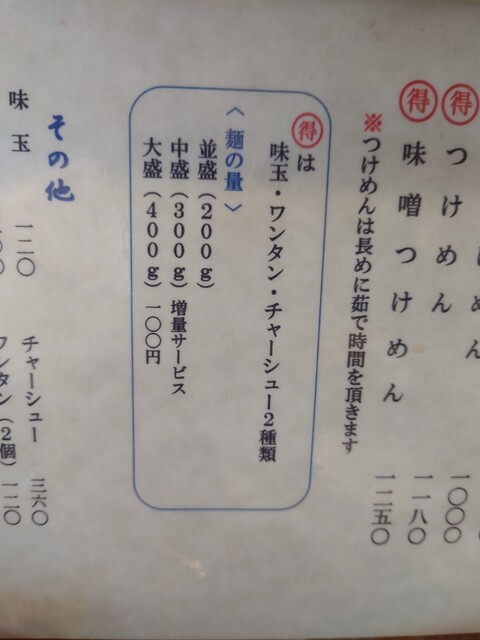 めん 一〇〇〇
得 つけめん 一一八〇
得 味噌つけめん 一二五〇
※つけめんは長めに茹で時間を頂きます
得は
味玉・ワンタン・チャーシュー2種類
〈麺の量〉
並盛（200g）
中盛（300g）増量サービス
大盛（400g）一〇〇円
その他
味玉 一二〇
チャーシュー 三六〇
ワンタン（2個）一二〇